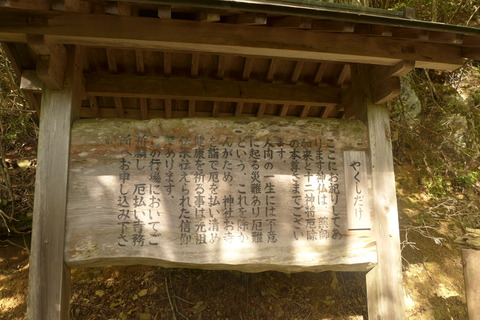 やくしだけ
ここにお祀りしてあ
ります神仏は、薬師
如来と十二神将厄除
の本尊さまでござい
ます。
人間の一生には不意
に起る災難あり厄難
という、これを除か
んがため、神社お寺
を詣で厄を払い清め
健康を祈る事は元祖
伝えられた信仰
あります。
行場においてこ
厄払い
お申し込み下さ